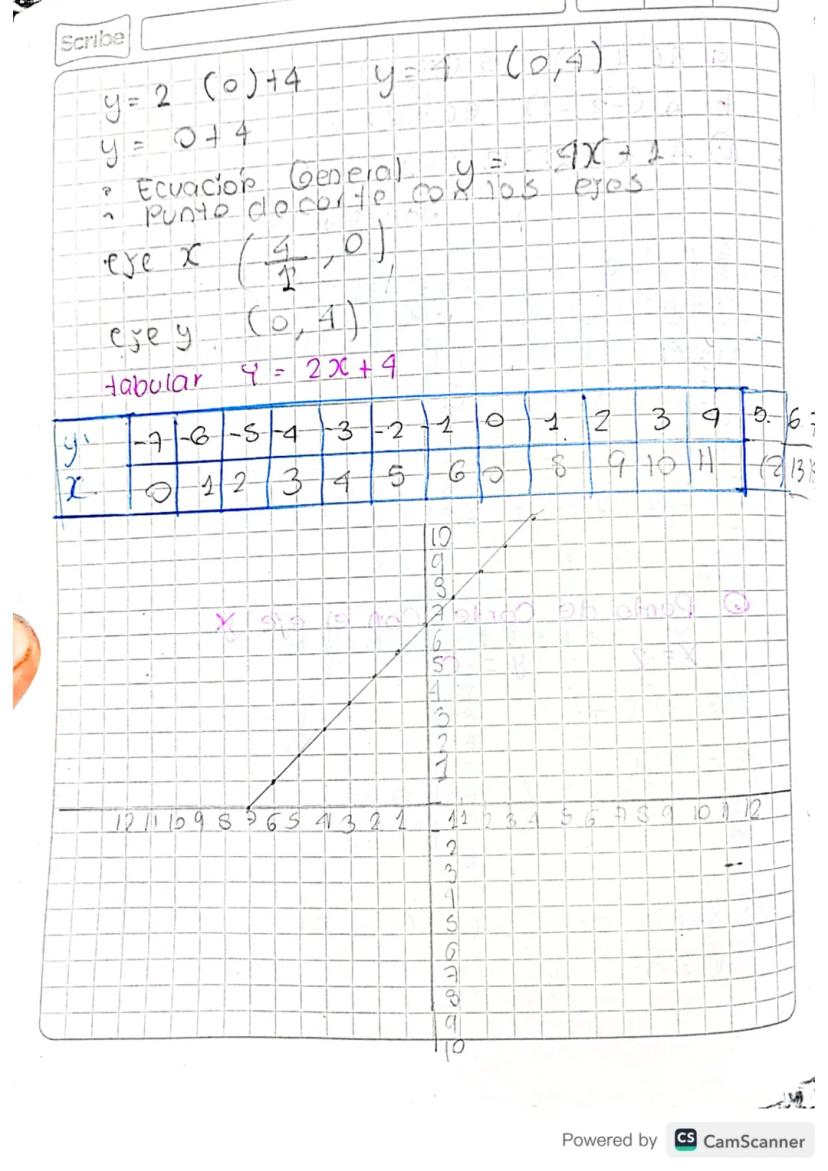 Scribe
y = 2 (0)+4 y = 4 (0,4)
y = 0+4
• Ecuación General y = 4x + 1
• Punto de corte con los ejes
eje x (4/1, 0)
eje y (0, 4)
tabular Y = 2x + 4
y -7 -6 -5 -4 -3 -2 -1 0 1 2 3 4 5 6 7
x 0 1 2 3 4 5 6 0 8 9 10 11 12 13
10
9
8
7
6
5
4
3
2
1
12 11 10 9 8 7 6 5 4 3 2 1 1 1 2 3 4 5 6 7 8 9 10 11 12
2
3
4
5
6
7
8
9
10
Powered by CS CamScanner